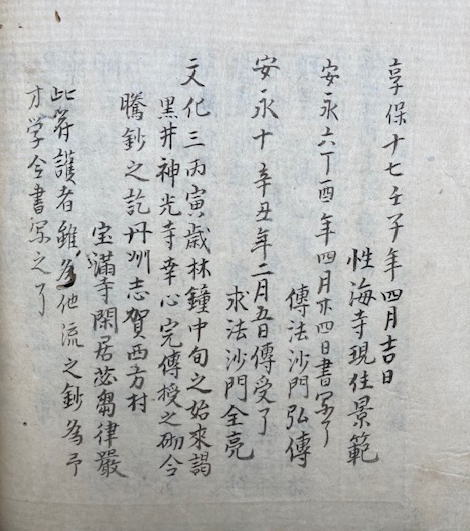 享保十七壬子年四月吉日
性海寺現住景範
安永六丁酉年四月廿四日書写了
傳法沙門弘傳
安永十辛丑年二月五日傳受了
求法沙門全亮
文化三丙寅歳林鐘中旬之始來謁
黒井神光寺幸心完傳授之砌令
騰鈔之訖丹州志賀西方村
宝満寺閑居苾芻律嚴
此符護者雖為他流之鈔為予
才学令書写之了